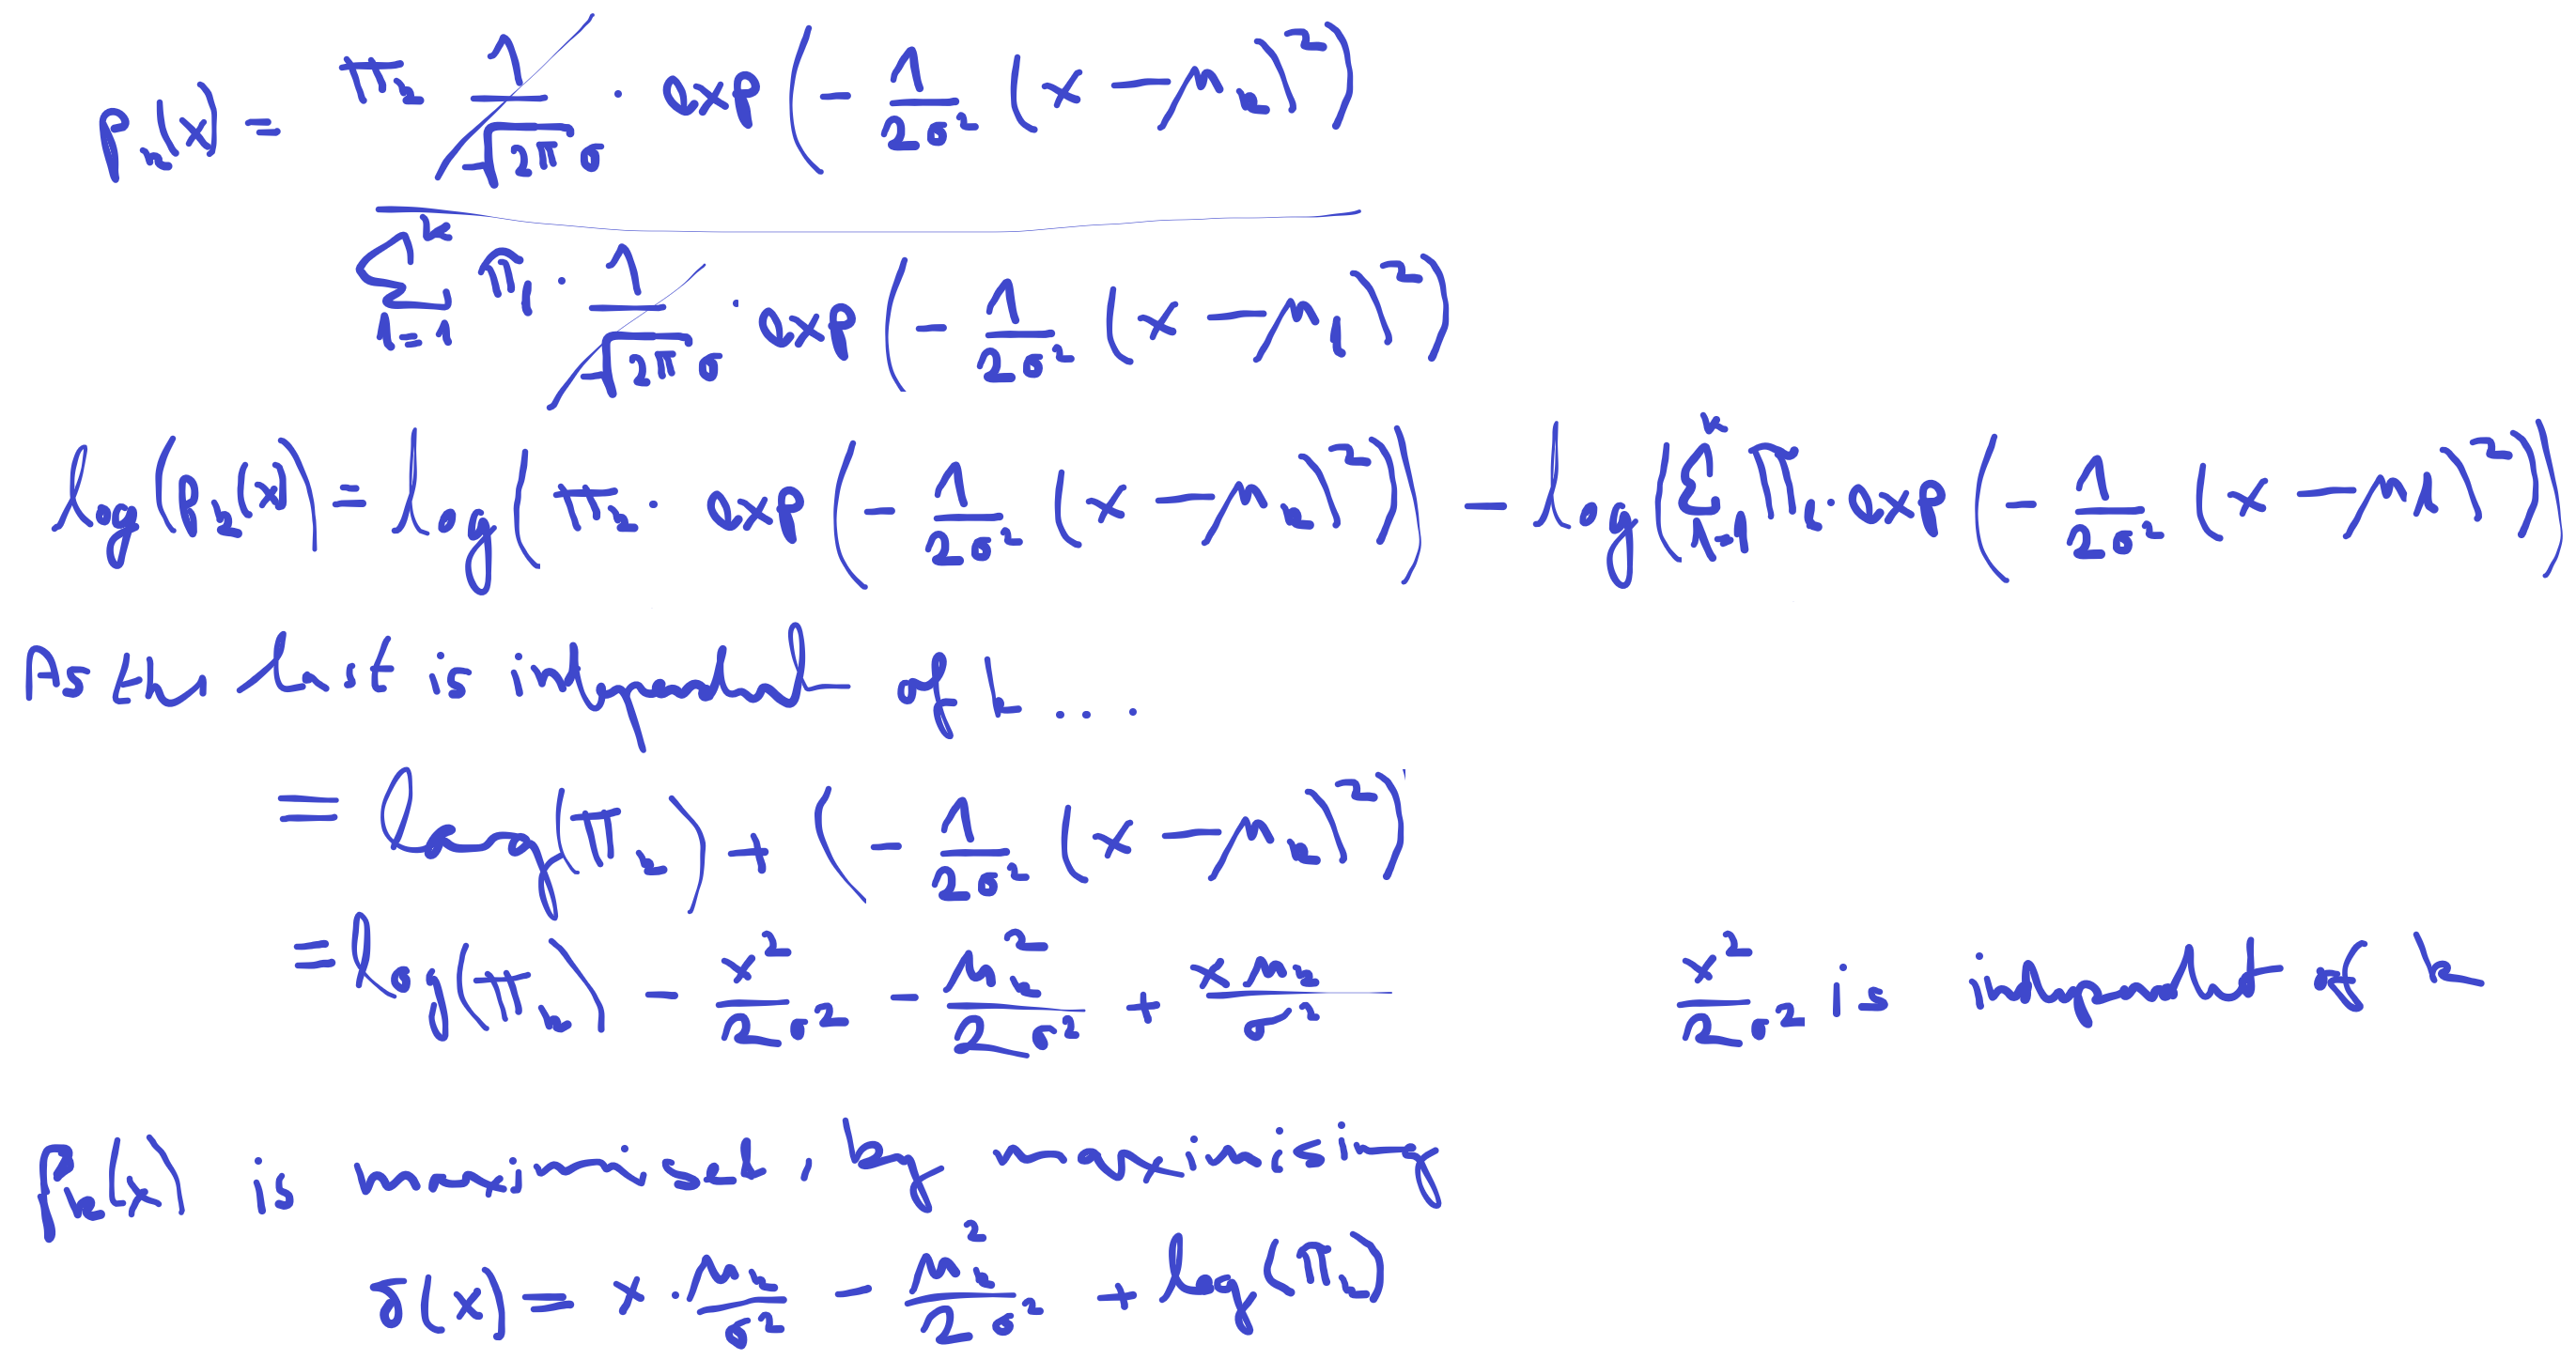 p_k(x) = \frac{π_k \frac{1}{\sqrt{2π}σ} · exp(-\frac{1}{2σ^2}(x-μ_k)^2)}{\sum_{l=1}^{k} π_l · \frac{1}{\sqrt{2π}σ} · exp(-\frac{1}{2σ^2}(x-μ_l)^2)}
log(p_k(x)) = log(π_k · exp(-\frac{1}{2σ^2}(x-μ_k)^2)) - log(\sum_{l=1}^{k} π_l · exp(-\frac{1}{2σ^2}(x-μ_l)^2))
As the last is independent of k ...
= log(π_k) + (-\frac{1}{2σ^2}(x-μ_k)^2)
= log(π_k) - \frac{x^2}{2σ^2} - \frac{μ_k^2}{2σ^2} + \frac{xμ_k}{σ^2} \frac{x^2}{2σ^2} is independent of k
p_k(x) is maximised, by maximising
δ(x) = x · \frac{μ_k}{σ^2} - \frac{μ_k^2}{2σ^2} + log(π_k)